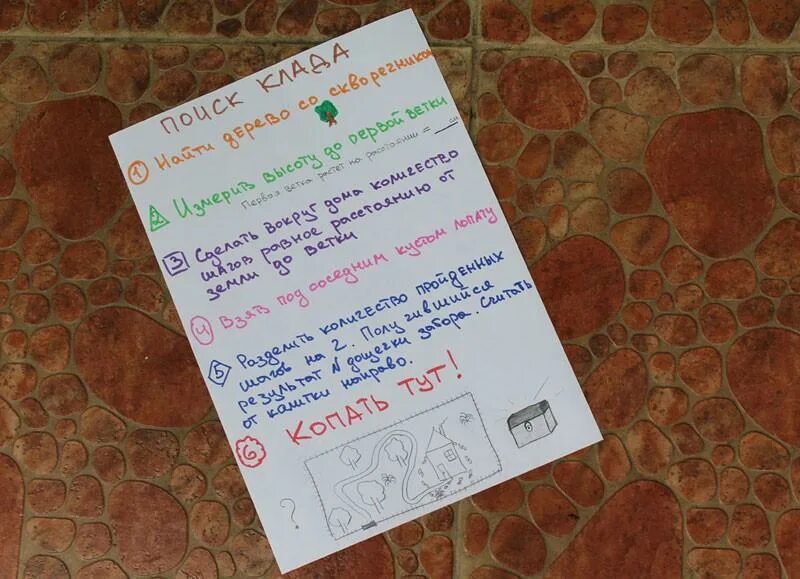 ПОИСК КЛАДА
1 Найти дерево со скворечником
2 Измерить высоту до первой ветки
Первая ветка растет на расстоянии = __ см
3 Сделать вокруг дома количество
шагов равное расстоянию от
земли до ветки
4 Взять под соседним кустом лопату
5 Разделить количество пройденных
шагов на 2. Получившийся
результат N дощечки забора. Считать
от калитки направо.
6 КОПАТЬ ТУТ!
?